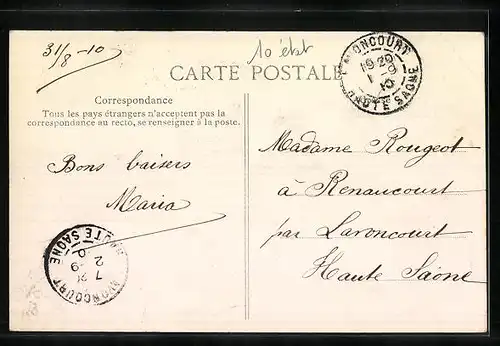 31/8-10
10 état
CARTE POSTALE
LAVONCOURT
19 20
1 -9
10
HAUTE SAONE
Correspondance
Tous les pays étrangers n'acceptent pas la
correspondance au recto, se renseigner à la poste.
Bons baisers
Maria
Madame Rougeot
à Renaucourt
par Lavoncourt
Haute Saône
HAUTE SAONE
7
2 -9
AVONCOURT